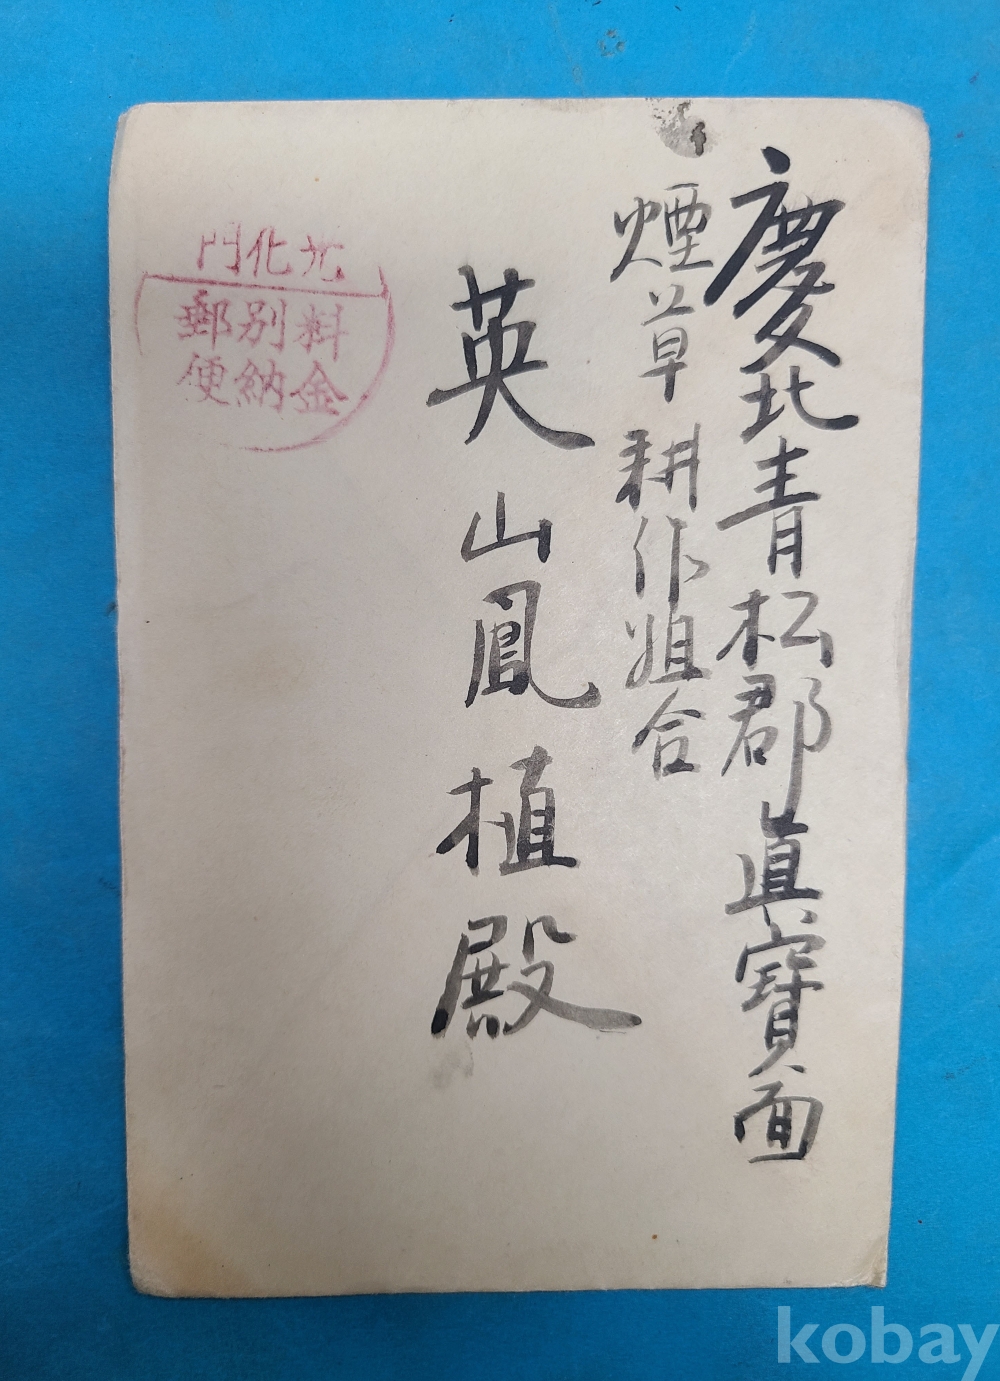 慶北青松郡眞寶面
煙草耕作組合
英山鳳植殿
光化門
料金
別納
郵便
kobay